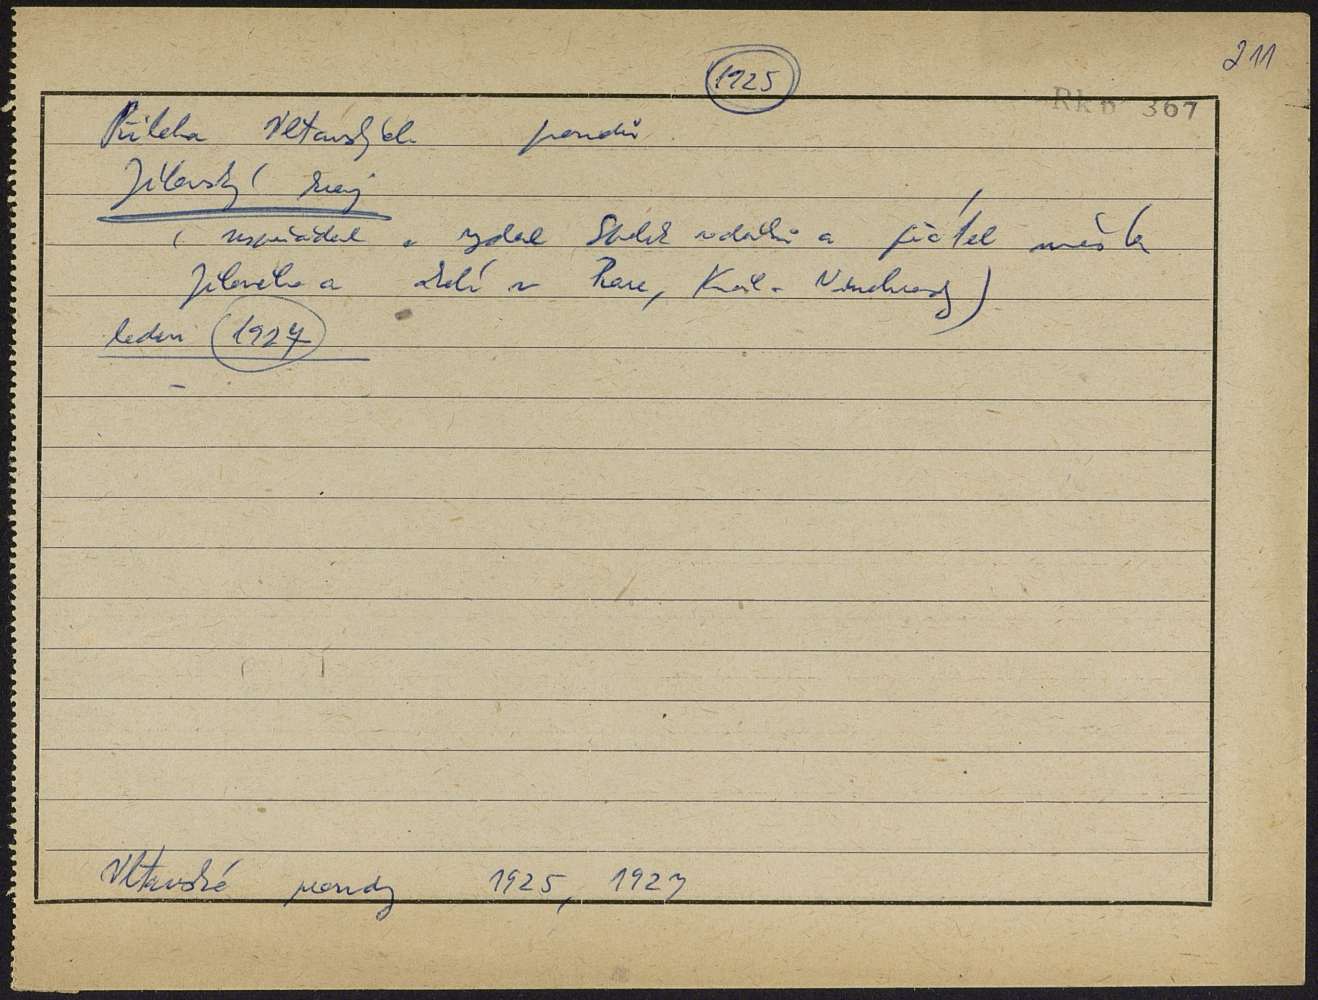 211
1925
Rkp 367
Příloha Vltavských proudů
Jílovský kraj
( uspořádal a vydal Spolek rodáků a přátel města
Jílového a okolí v Praze, Král. Vinohrady)
leden 1927
Vltavské proudy 1925, 1927